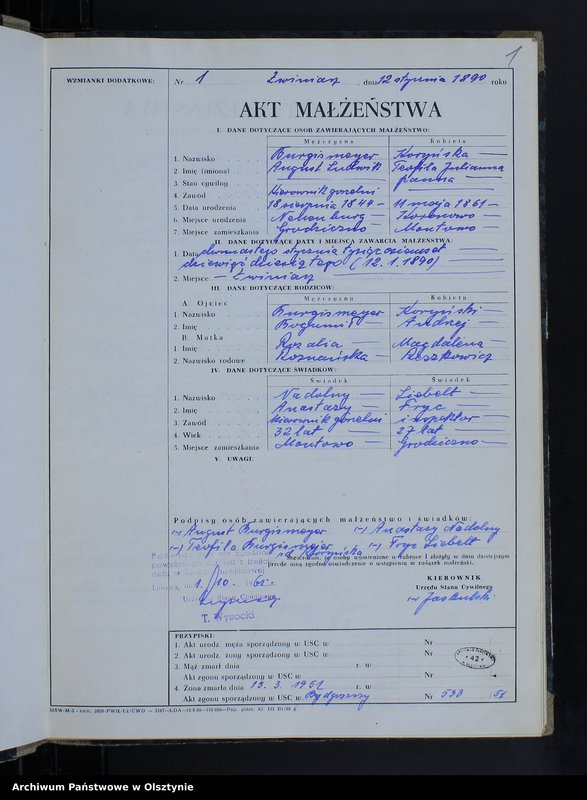 1
WZMIANKI DODATKOWE:
Nr 1 Zwiniarz, dnia 12 stycznia 1890 roku
AKT MAŁŻEŃSTWA
I. DANE DOTYCZĄCE OSÓB ZAWIERAJĄCYCH MAŁŻEŃSTWO:
Mężczyzna Kobieta
1. Nazwisko Burgismeyer Koryńska
2. Imię (imiona) August Ludwik Teofila Julianna
3. Stan cywilny panna
4. Zawód Kierownik gorzelni
5. Data urodzenia 18 sierpnia 1844 11 maja 1861
6. Miejsce urodzenia Koronowo
7. Miejsce zamieszkania Grodziczno Montowo
II. DANE DOTYCZĄCE DATY I MIEJSCA ZAWARCIA MAŁŻEŃSTWA:
1. Data dwunastego stycznia tysiąc osiemset
dziewięćdziesiątego (12.1.1890)
2. Miejsce Zwiniarz
III. DANE DOTYCZĄCE RODZICÓW:
Mężczyzny Kobiety
A. Ojciec
1. Nazwisko Burgismeyer Koryński
2. Imię Bogumił Andrzej
B. Matka
1. Imię Rozalia Magdalena
2. Nazwisko rodowe Poznańska Reszkowicz
IV. DANE DOTYCZĄCE ŚWIADKÓW:
Świadek Świadek
1. Nazwisko Nadolny Liebelt
2. Imię Anastazy Fryc
3. Zawód kierownik gorzelni inspektor
4. Wiek 32 lat 27 lat
5. Miejsce zamieszkania Montowo Grodziczno
V. UWAGI:
Podpisy osób zawierających małżeństwo i świadków:
(-) August Burgismeyer (-) Anastazy Nadolny
(-) Teofila Burgismejer (-) Fryc Liebelt
Stwierdzam, że osoby wymienione w rubryce I złożyły w dniu dzisiejszym
przede mną zgodne oświadczenie o wstąpieniu w związek małżeński.
KIEROWNIK
Urzędu Stanu Cywilnego
T. Wysocki
PRZYPISKI:
1. Akt urodz. męża sporządzono w USC w Nr
2. Akt urodz. żony sporządzono w USC w Nr
3. Mąż zmarł dnia r. w
Akt zgonu sporządzono w USC w Nr
4. Żona zmarła dnia 19. 3. 1951 r. w
Akt zgonu sporządzony w USC w Bydgoszczy Nr 533 51
42
Archiwum Państwowe w Olsztynie